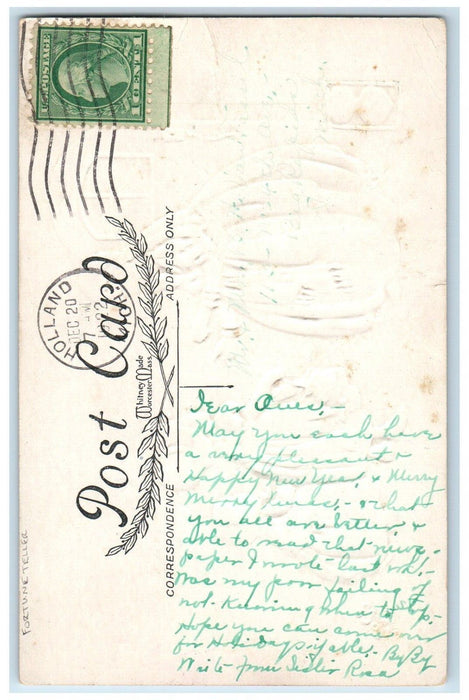 U.S. POSTAGE
1 CENT 1
HOLLAND
DEC 20
7 AM
Post Card
Whitney Made
Worcester, Mass.
ADDRESS ONLY
CORRESPONDENCE
FORTUNE TELLER
Dear
May you each have
a very pleasant &
Happy New Year, & Merry
Merry Xmas, - & that
you all are better &
able to read that news-
paper I wrote last wk. -
was my poor failing of
not Knowing when to stop.
Hope you can come over
for Holidays if able. - By By
Write from Sister Rosa